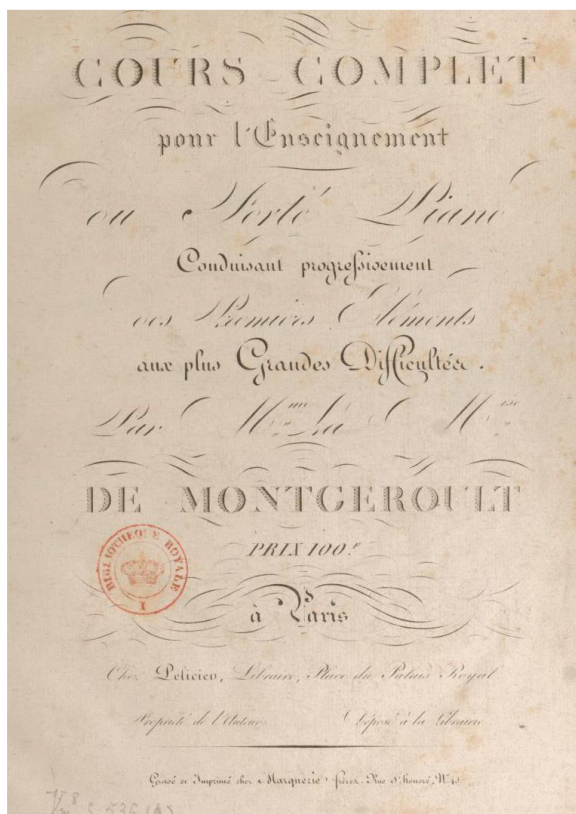 COURS COMPLET
pour l'Enseignement
du Forté Piano
Conduisant progressivement
des Premiers Éléments
aux plus Grandes Difficultés.
Par Mme La Mise
DE MONTGEROULT
PRIX 100f
BIBLIOTHEQUE ROYALE
I
à Paris
Chez Pelicier, Libraire, Place du Palais Royal
Propriété de l'Auteur Déposé à la Librairie
Gravé et Imprimé chez Marquerie frères. Rue St Honoré,